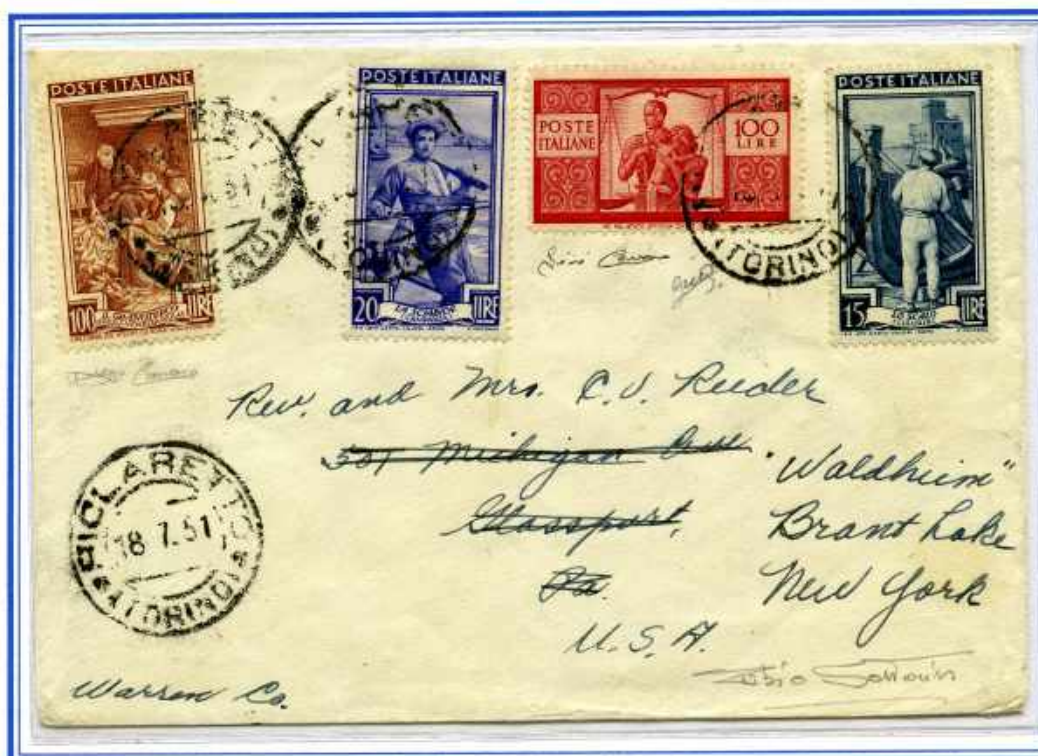 POSTE ITALIANE
100 LIRE
POSTE ITALIANE
20 LIRE
POSTE
ITALIANE
100
LIRE
(TORINO)
POSTE ITALIANE
15 LIRE
Rev. and Mrs. C. V. Reeder
501 Michigan Ave
Glassport,
Pa.
"Waldheim"
Brant Lake
New York
U.S.A.
PICLARETTO
18 7.51
(TORINO)
Warren Co.